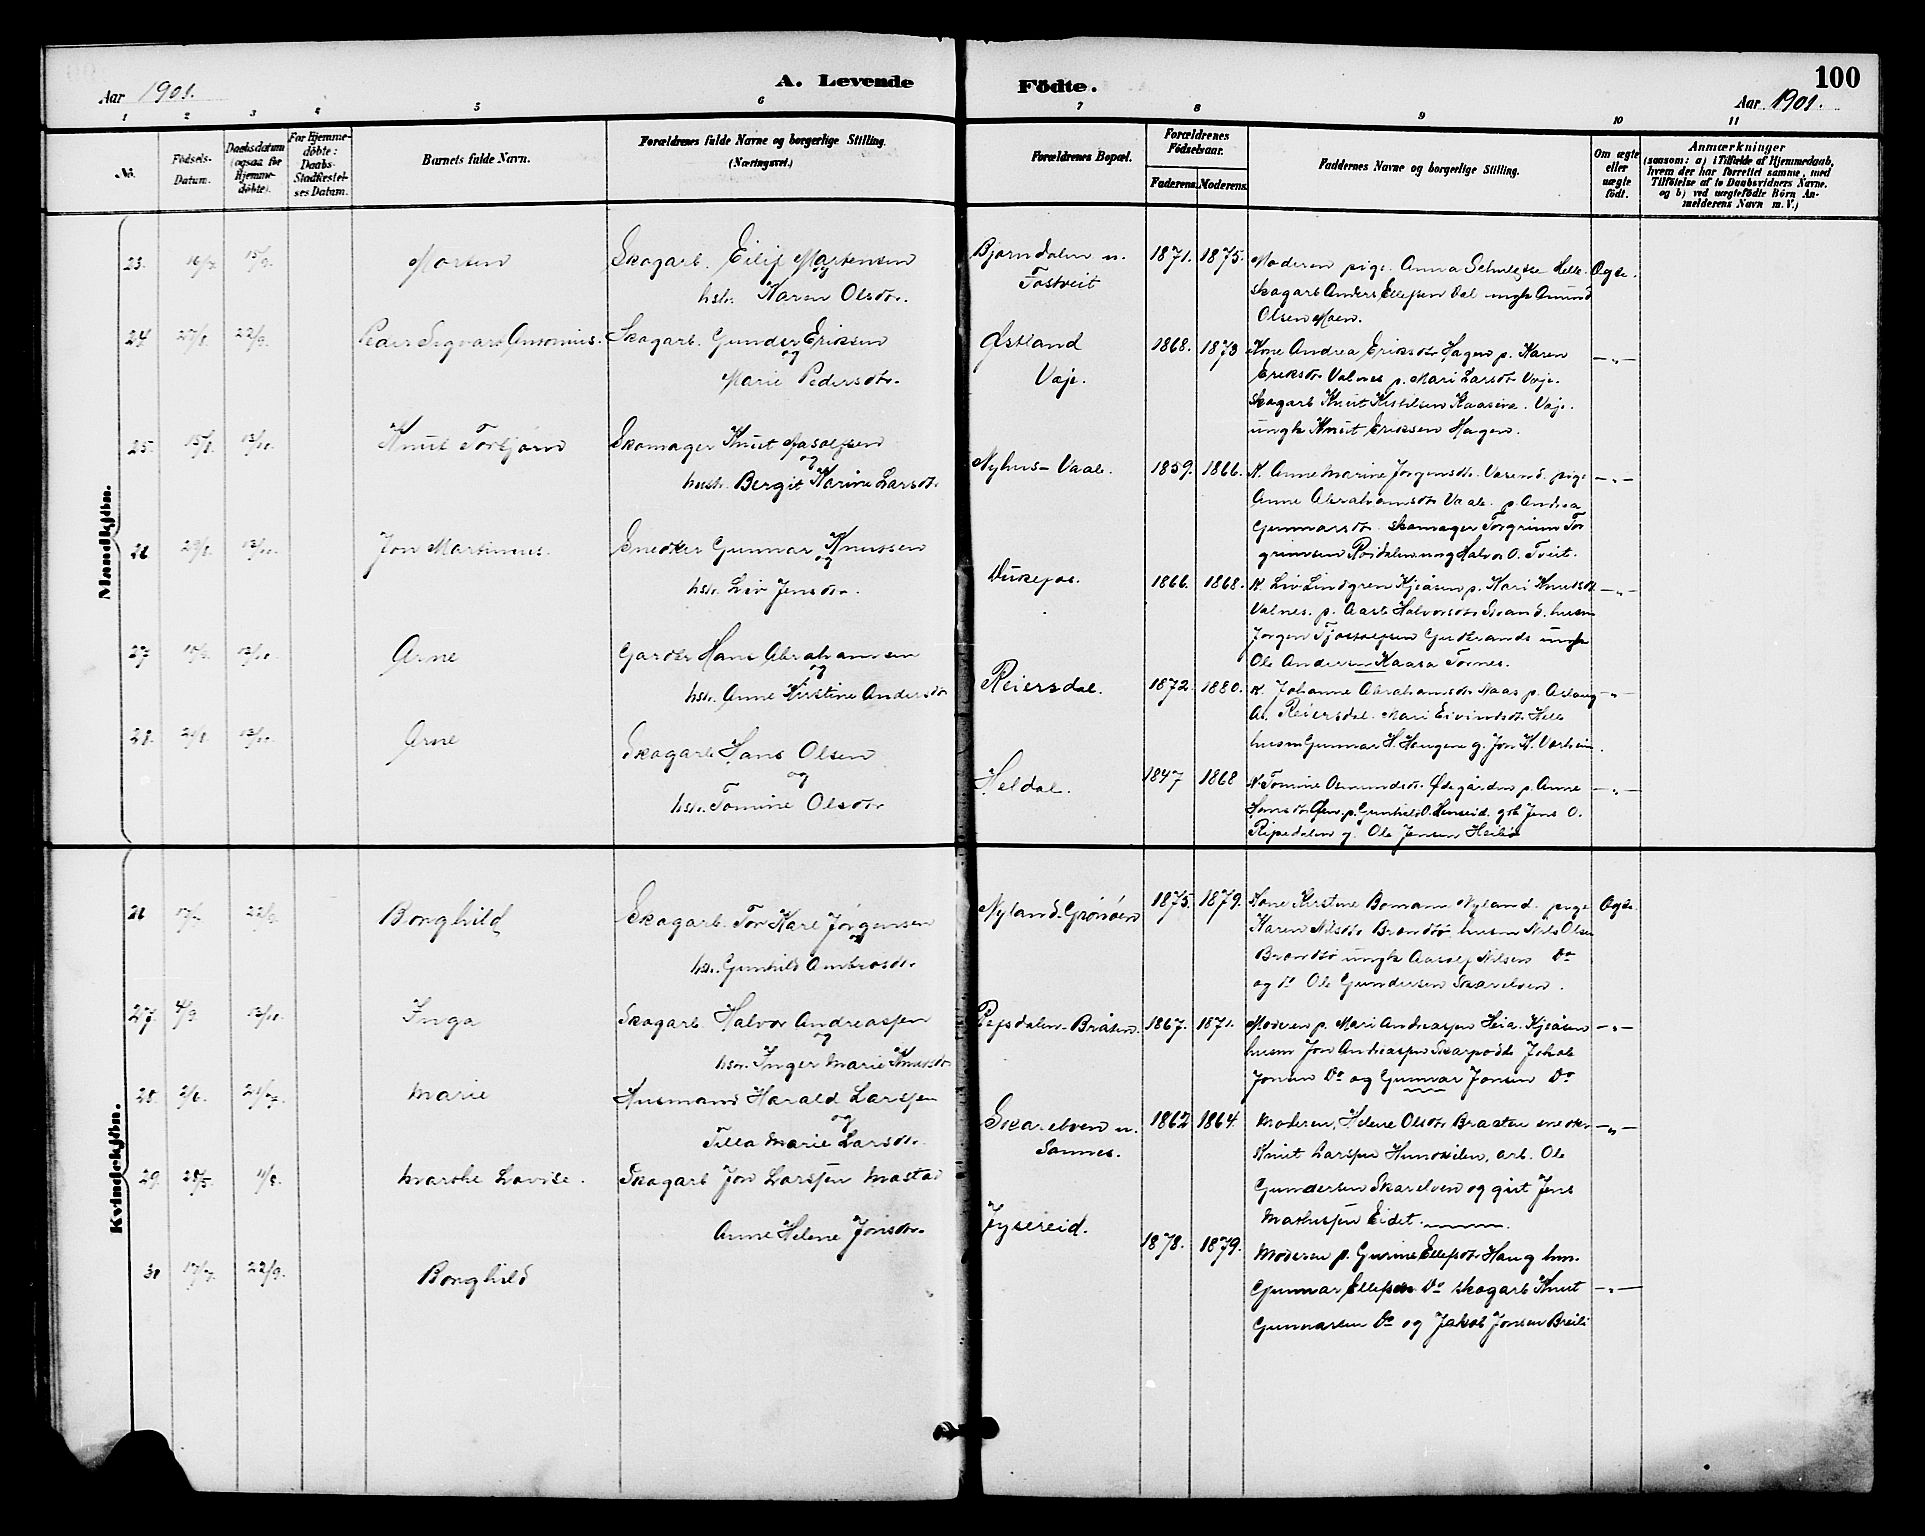 Aar 1901.
A. Levende Födte.
100
Aar 1901.
1 2 3 4 5 6 7 8 9 10 11
No.
Födsels-Datum.
Daabsdatum (ogsaa for Hjemmedöbte).
For Hjemmedöbte: Daabs-Stadfæstelses Datum.
Barnets fulde Navn.
Forældrenes fulde Navne og borgerlige Stilling. (Næringsvei.)
Forældrenes Bopæl.
Forældrenes Födselsaar.
Faderens. Moderens.
Faddernes Navne og borgerlige Stilling.
Om ægte eller uægte födt.
Anmærkninger
(saasom: a) i Tilfælde af Hjemmedaab,
hvem der har forrettet samme, med
Tilföielse af to Daabsvidners Navne.
og b) ved uægtefödte Börn An-
melderens Navn m. V.)
Mandkjön.
23. 16/7 15/9. Morten
Skogarb. Eilif Mortensen
og
hstr. Karen Olsdtr.
Bjorndalen u.
Tostveit
1871. 1875.
Moderen pige Anna Helle.
Skogarb Anders Ellefsen Dal ungk Amund
Olsen Moen.
Ægte.
24. 27/8. 22/9. Peder Sigvart Antonius.
Skogarb. Gunder Eriksen
og
Marie Pedersdtr.
Østland
Vaje.
1868. 1873
Kone Andrea Eriksdtr Hagen p. Karen
Eriksdtr Valnes p. Mari Larsdtr Vaje.
Skogarb Knut Kittilsen Kaasene. Vaje.
ungk Knut Eriksen Hagen.
—„—
25. 15/8. 13/10. Knut Torbjørn
Skomager Knut Aasolfsen
og
hustr. Bergit Karine Larsdtr.
Nyhus - Vaal.
1859. 1866.
K. Anne Marine Jørgensdtr. pige
Anne Abrahamsdtr Vaale. p Andrea
Gunnarsdtr. Skomager Torgrim Tor
grimsen ung Halvor O. Tveit.
—„—
26 29/8. 13/10. Jon Martinius.
Snedker Gunnar Knutsen
og
hstr. Liv Jensdtr.
1866. 1868.
K. Liv Lindgren Kjeåsen p. Kari Knutsdtr
Valnes. p. Aase Halvorsdtr Strand. husm
Jørgen Tjostolfsen Gudbrands ungk
Ole Andersen Kaasa Tornes.
—„—
27 13/10. Arne
Gardbr Hans Abrahamsen
og
hstr. Anne Kirstine Andersdtr
Reiersdal.
1872. 1880.
K. Johanne Abrahamsdtr Naas p. Aslaug
A. Reiersdal. Mari Eivindsdtr Helle
husm Gunnar H. Haugene g. Jon K. Varheim.
—„—
28. 13/10. Arne
Skogarb Hans Olsen
og
hstr. Tomine Olsdtr
Heldal.
1847 1868
K Tomine Osmundsdtr. Ødegården p. Anne
Hansdtr p. Gunhild O. Henseid. gsk Jens O.
Ripedalen g. Ole Jensen Heibø
—„—
Kvindekjön.
26 22/9. Borghild
Skogarb. Tor Karl Jørgensen
og
hstr. Gunhild Ambrosdtr
Nyland Grønåen
1875. 1879.
Kone Kirstine Bomann Nyland. pige
Karen Nilsdtr Brandbø husm Nils Olsen
Brandbø ungk Aasolf Nilsen Do
og Do Ole Gundersen Skarelven.
Ægte.
27. 4/9. 13/10. Inga
Skogarb. Halvor Andreassen
og
hstr. Inger Marie Knutsdtr
Ripsdalen - Bråten.
1867. 1871.
Moderen p. Mari Andreassen Heia. Kjeåsen
husm Jon Andreassen Jakob
Jonsen Do og Gunnar Jonsen Do
—„—
28. 2/6. 21/7. Marie
Husmand Harald Larssen
og
Tilla Marie Larsdtr.
Skarelven u.
Sannes.
1862 1864.
Moderen, Helene Olsdtr Braaten snedker
Knut Larssen arb. Ole
Gundersen Skarelven og gift Jens
Mathissen Eidet.
—„—
29. 28/5. 4/8. Marthe Lovise.
Skogarb Jon Larssen Mastad
Anne Helene Jonsdtr.
Jysereid.
1878. 1879.
Moderen p. Gurine Ellefsdtr Haug husm.
Gunnar Ellefsen Do skogarb Knut
Gunnarsen Do og Jakob Jonsen Breili
—„—
30 17/7. 22/9. Borghild